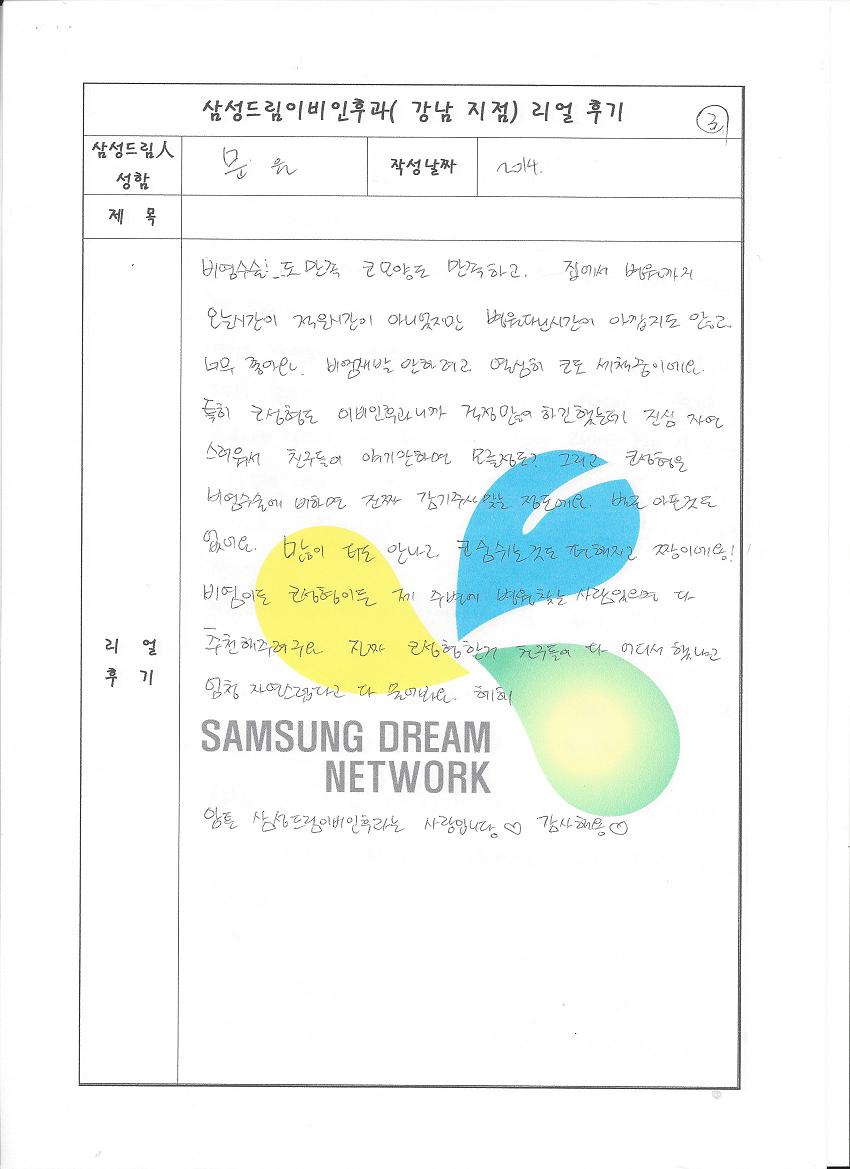 삼성드림이비인후과( 강남 지점) 리얼 후기
코
삼성드림人 성함
문 윤
작성날짜
2014.
제 목
비염수술도 만족 코모양도 만족하고. 집에서 병원까지
오는시간이 적은시간이 아니었지만 병원다닌시간이 아깝지도 않고
너무 좋아요. 비염재발 안하려고 열심히 코도 세척중이에요.
특히 코성형도 이비인후과니까 걱정많이 하긴했는데 진심 자연
스러워서 친구들이 얘기안하면 모를정도? 그리고 코성형은
비염수술에 비하면 진짜 감기주사 맞는 정도에요. 별로 아픈것도
없어요. 많이 티도 안나고 코숨쉬는것도 편해지고 짱이에용!
비염이든 코성형이든 제 주변에 병원찾는 사람있으면 다
추천해주려구요 진짜 코성형한거 친구들이 다 어디서 했냐고
엄청 자연스럽다고 다 물어봐요. 헤헤
리 얼
후 기
SAMSUNG DREAM
NETWORK
암튼 삼성드림이비인후과는 사랑입니다♡ 감사해용♡